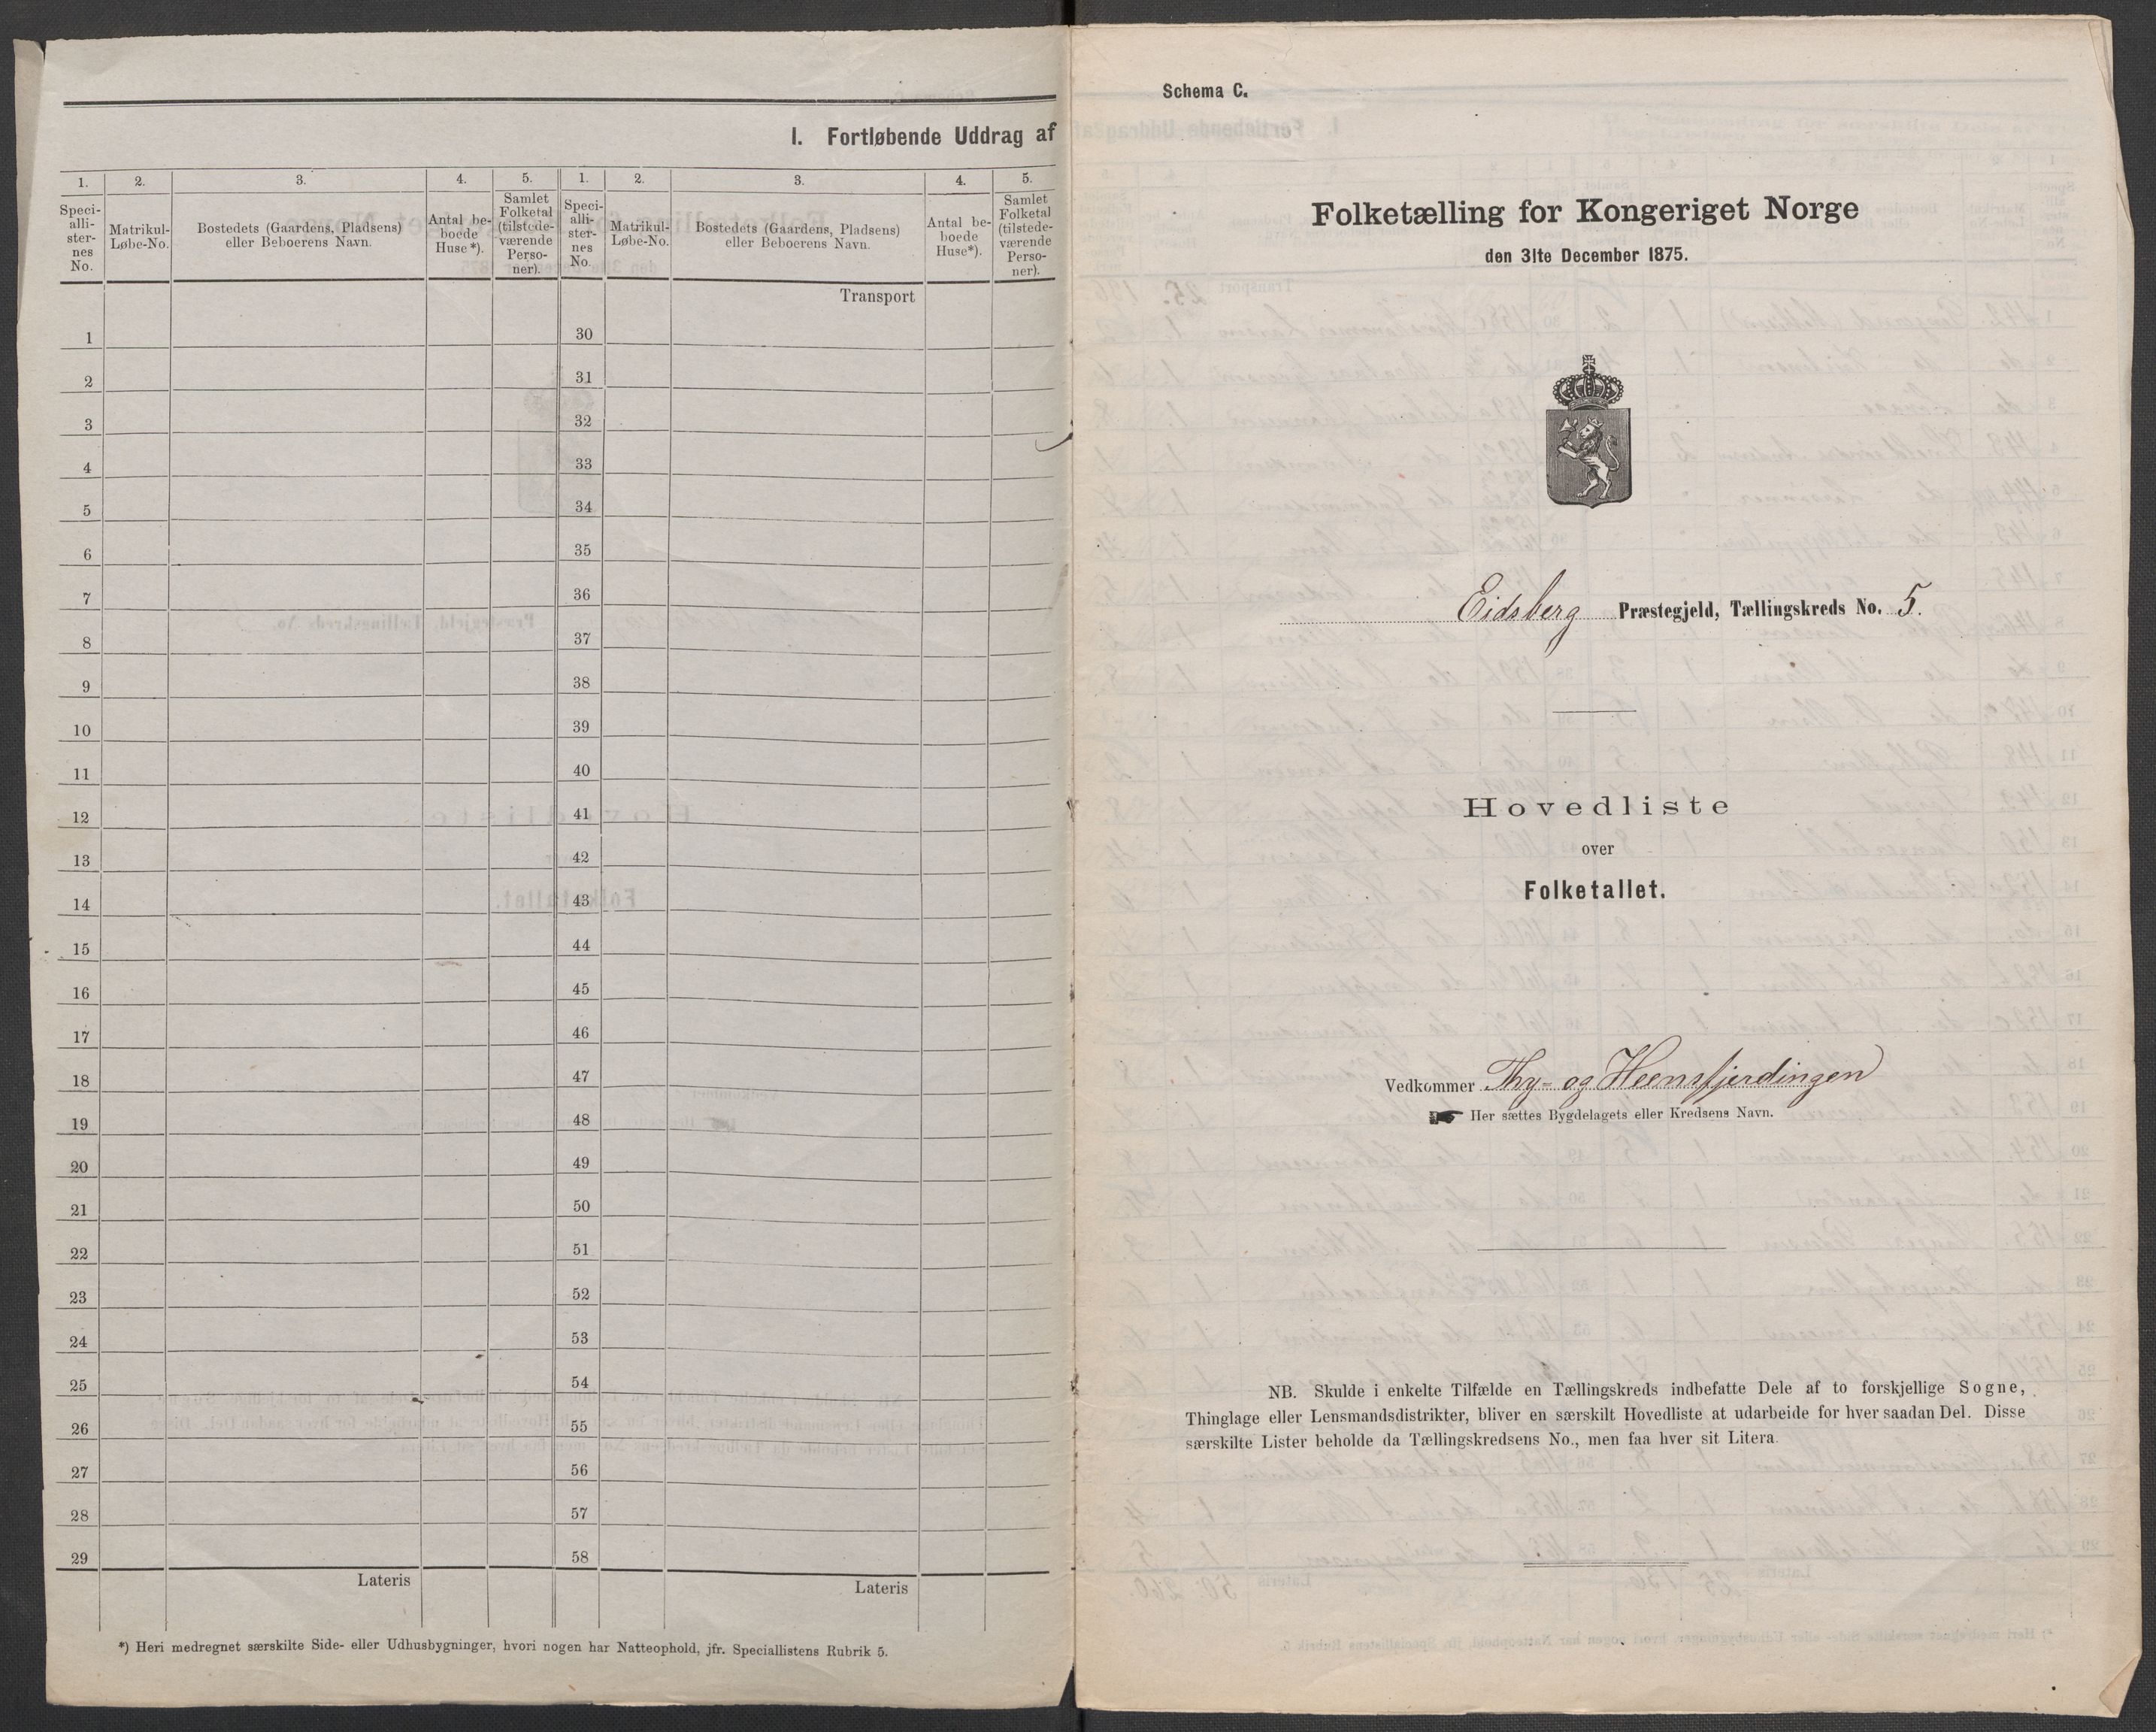 I. Fortløbende Uddrag af
1.
2.
3.
4.
5.
1.
2.
3.
4.
5.
Speci-
alli-
ster-
nes
No.
Matrikul-
Løbe-No.
Bostedets (Gaardens, Pladsens)
eller Beboerens Navn.
Antal be-
boede
Huse*).
Samlet
Folketal
(tilstede-
værende
Perso-
ner).
Speci-
alli-
ster-
nes
No.
Matrikul-
Løbe-No.
Bostedets (Gaardens, Pladsens)
eller Beboerens Navn.
Antal be-
boede
Huse*).
Samlet
Folketal
(tilstede-
værende
Perso-
ner).
Transport
1 30
2 31
3 32
4 33
5 34
6 35
7 36
8 37
9 38
10 39
11 40
12 41
13 42
14 43
15 44
16 45
17 46
18 47
19 48
20 49
21 50
22 51
23 52
24 53
25 54
26 55
27 56
28 57
29 58
Lateris Lateris
*) Heri medregnet særskilte Side- eller Udhusbygninger, hvori nogen har Natteophold, jfr. Speciallistens Rubrik 5.
Schema C.
Folketælling for Kongeriget Norge
den 31te December 1875.
Eidsberg Præstegjeld, Tællingskreds No. 5.
Hovedliste
over
Folketallet.
Vedkommer Thy- og Heensfjerdingen
Her sættes Bygdelagets eller Kredsens Navn.
NB. Skulde i enkelte Tilfælde en Tællingskreds indbefatte Dele af to forskjellige Sogne,
Thinglage eller Lensmandsdistrikter, bliver en særskilt Hovedliste at udarbeide for hver saadan Del. Disse
særskilte Lister beholde da Tællingskredsens No., men faa hver sit Litera.